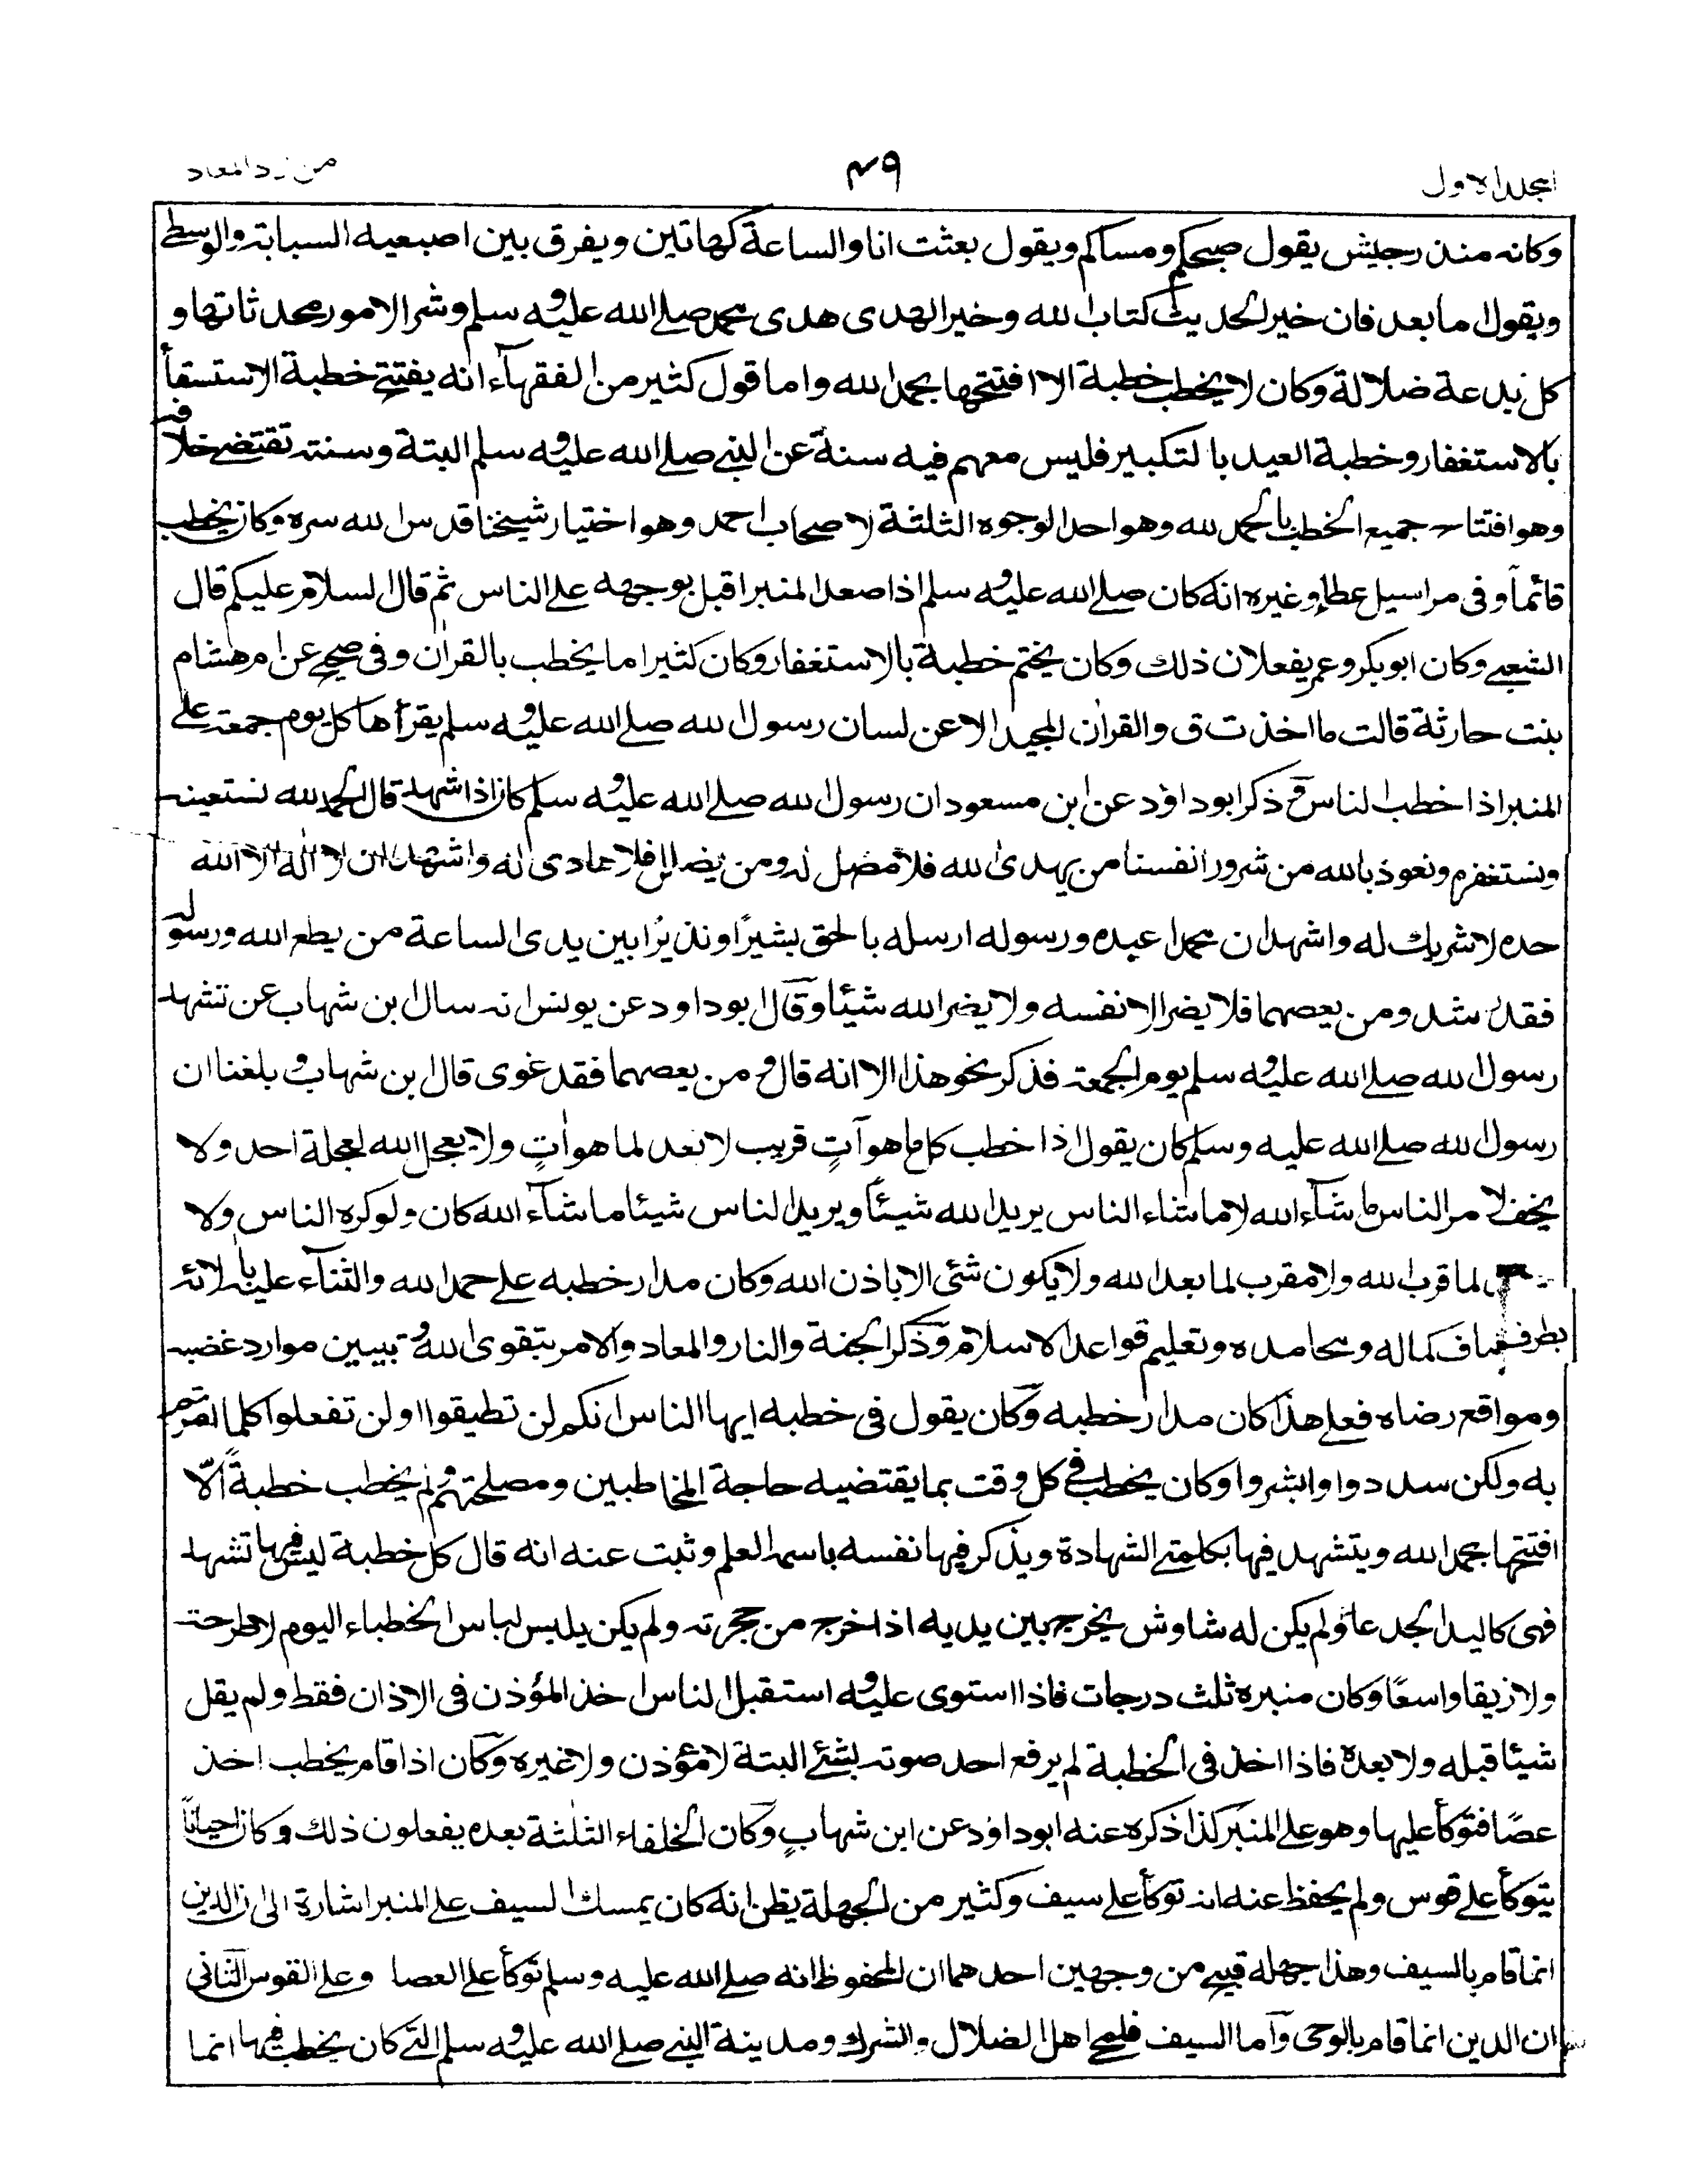 المجلد الاول
٤٩
من زاد المعاد
وكانه منذر جيش يقول صبحكم ومساكم ويقول بعثت انا والساعة كهاتين ويفرق بين اصبعيه السبابة والوسطى
ويقول اما بعد فان خير الحديث كتاب الله وخير الهدى هدى محمد صلى الله عليه وسلم وشر الامور محدثاتها و
كل بدعة ضلالة وكان لا يخطب خطبة الا افتتحها بحمد الله واما قول كثير من الفقهآء انه يفتتح خطبة الاستسقآء
بالاستغفار وخطبة العيد بالتكبير فليس معهم فيه سنة عن النبى صلى الله عليه وسلم البتة وسنته تقتضى خلافه
وهو افتتاح جميع الخطب بالحمد لله وهو احد الوجوه الثلثة لاصحاب احمد وهو اختيار شيخنا قدس الله سره وكان يخطب
قائما وفى مراسيل عطاء وغيره انه كان صلى الله عليه وسلم اذا صعد المنبر اقبل بوجهه على الناس ثم قال السلام عليكم قال
الشعبى وكان ابو بكر وعمر يفعلان ذلك وكان يختم خطبة بالاستغفار وكان كثيرا ما يخطب بالقران وفى صحيح عن ام هشام
بنت حارثة قالت ما اخذت ق والقران المجيد الا عن لسان رسول الله صلى الله عليه وسلم يقرأها كل يوم جمعة على
المنبر اذا خطب الناس وذكر ابو داؤد عن ابن مسعود ان رسول الله صلى الله عليه وسلم كان اذا شهد قال الحمد لله نستعينه
ونستغفره ونعوذ بالله من شرور انفسنا من يهدى الله فلا مضل له ومن يضلل فلا هادى له واشهد ان لا اله الا الله
حده لا شريك له واشهد ان محمدا عبده ورسوله ارسله بالحق بشيرًا ونذيرًا بين يدى الساعة من يطع الله ورسوله
فقد رشد ومن يعصهما فلا يضر الا نفسه ولا يضر الله شيئا وقال ابو داود عن يونس انه سال ابن شهاب عن تشهد
رسول الله صلى الله عليه وسلم يوم الجمعة فذكر نحو هذا الا انه قال ومن يعصهما فقد غوى قال ابن شهاب وبلغنا ان
رسول الله صلى الله عليه وسلم كان يقول اذا خطب كل ما هو آتٍ قريب لا بعد لما هو اٰتٍ ولا يعجل الله لعجلة احد ولا
يخف لامر الناس ما شآء الله لا ما شاء الناس يريد الله شيئًا ويريد الناس شيئا ما شآء الله كان ولو كره الناس ولا
لما قرب الله ولا مقرب لما بعد الله ولا يكون شئ الا باذن الله وكان مدار خطبه على حمد الله والثنآء عليه بالائه
كماله ومحامده وتعليم قواعد الاسلام وذكر الجنة والنار والمعاد والامر بتقوى الله وتبيين موارد غضبه
ومواقع رضاه فعلى هذا كان مدار خطبه وكان يقول فى خطبه ايها الناس انكم لن تطيقوا او لن تفعلوا كلما امرتم
به ولكن سددوا وابشروا وكان يخطب فى كل وقت بما يقتضيه حاجة المخاطبين ومصلحتهم ولم يخطب خطبةً الّا
افتتحها بحمد الله ويتشهد فيها بكلمتى الشهادة ويذكر فيها نفسه باسمه العلم وثبت عنه انه قال كل خطبة ليس فيها تشهد
فهى كاليد الجدعاء ولم يكن له شاوش يخرج بين يديه اذا خرج من حجرته ولم يكن يلبس لباس الخطباء اليوم لا طرحة
ولا زيقا واسعًا وكان منبره ثلث درجات فاذا استوى عليه واستقبل الناس اخذ المؤذن فى الاذان فقط ولم يقل
شيئا قبله ولا بعده فاذا اخذ فى الخطبة لم يرفع احد صوته بشئ البتة لا مؤذن ولا غيره وكان اذا قام يخطب اخذ
عصًا فتوكأ عليها وهو على المنبر كذا ذكره عنه ابو داؤد عن ابن شهابٍ وكان الخلفاء الثلثة بعده يفعلون ذلك وكان احيانًا
يتوكأ على قوس ولم يحفظ عنه انه توكأ على سيف وكثير من الجهلة يظن انه كان يمسك السيف على المنبر اشارة الى ان الدين
انما قام بالسيف وهذا جهلة قبيح من وجهين احدهما ان المحفوظ انه صلى الله عليه وسلم توكأ على العصا وعلى القوس الثانى
ان الدين انما قام بالوحى وآما السيف فلمحى اهل الضلال والشرك ومدينة النبى صلى الله عليه وسلم التى كان يخطب فيها انما